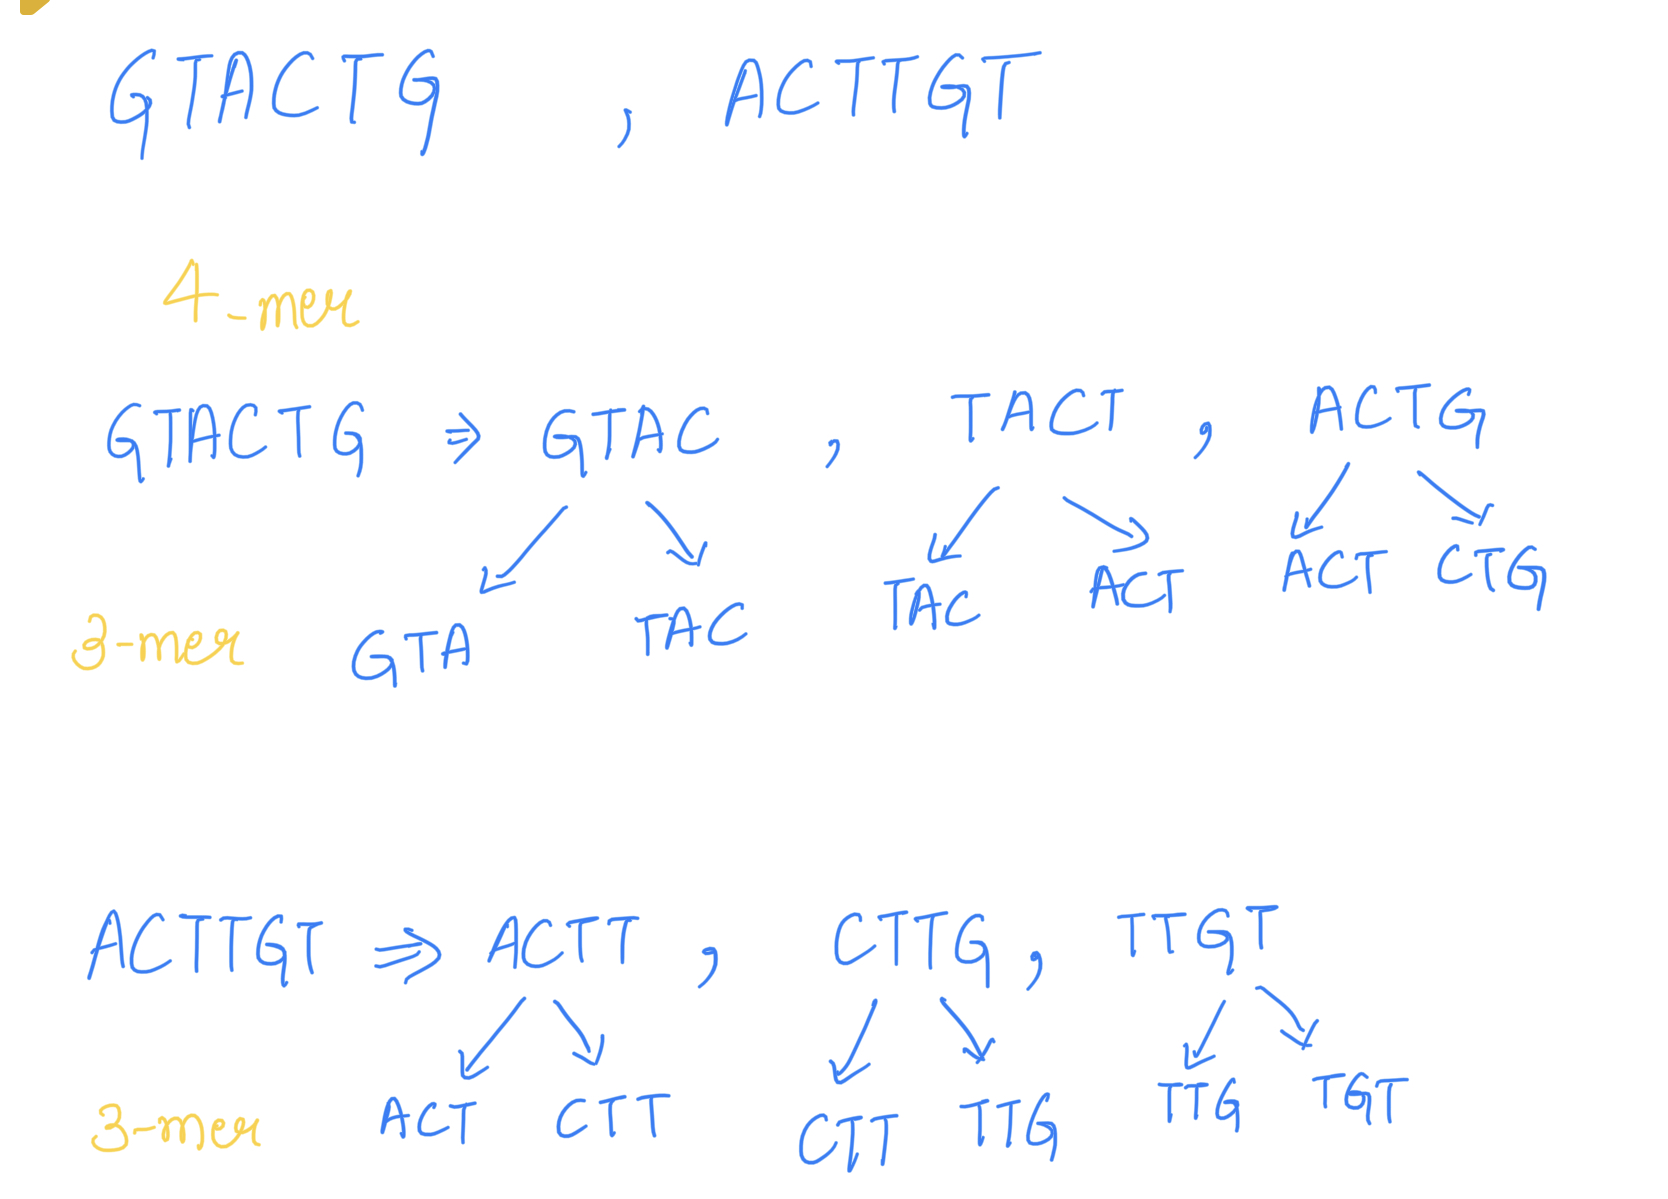 GTACTG , ACTTGT
4-mer
GTACTG ⇒ GTAC , TACT , ACTG
3-mer GTA TAC TAC ACT ACT CTG
ACTTGT ⇒ ACTT , CTTG , TTGT
3-mer ACT CTT CTT TTG TTG TGT